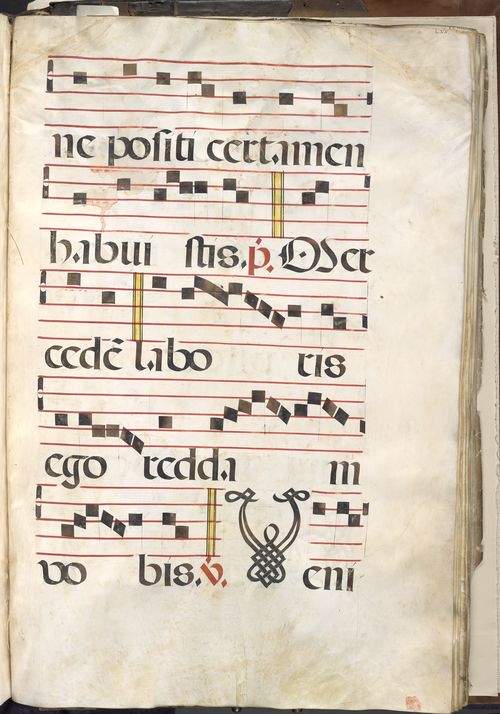 ne positi certamen
habui stis. p. Mer
cedē labo ris
ego redda m
vo bis. v. V eni